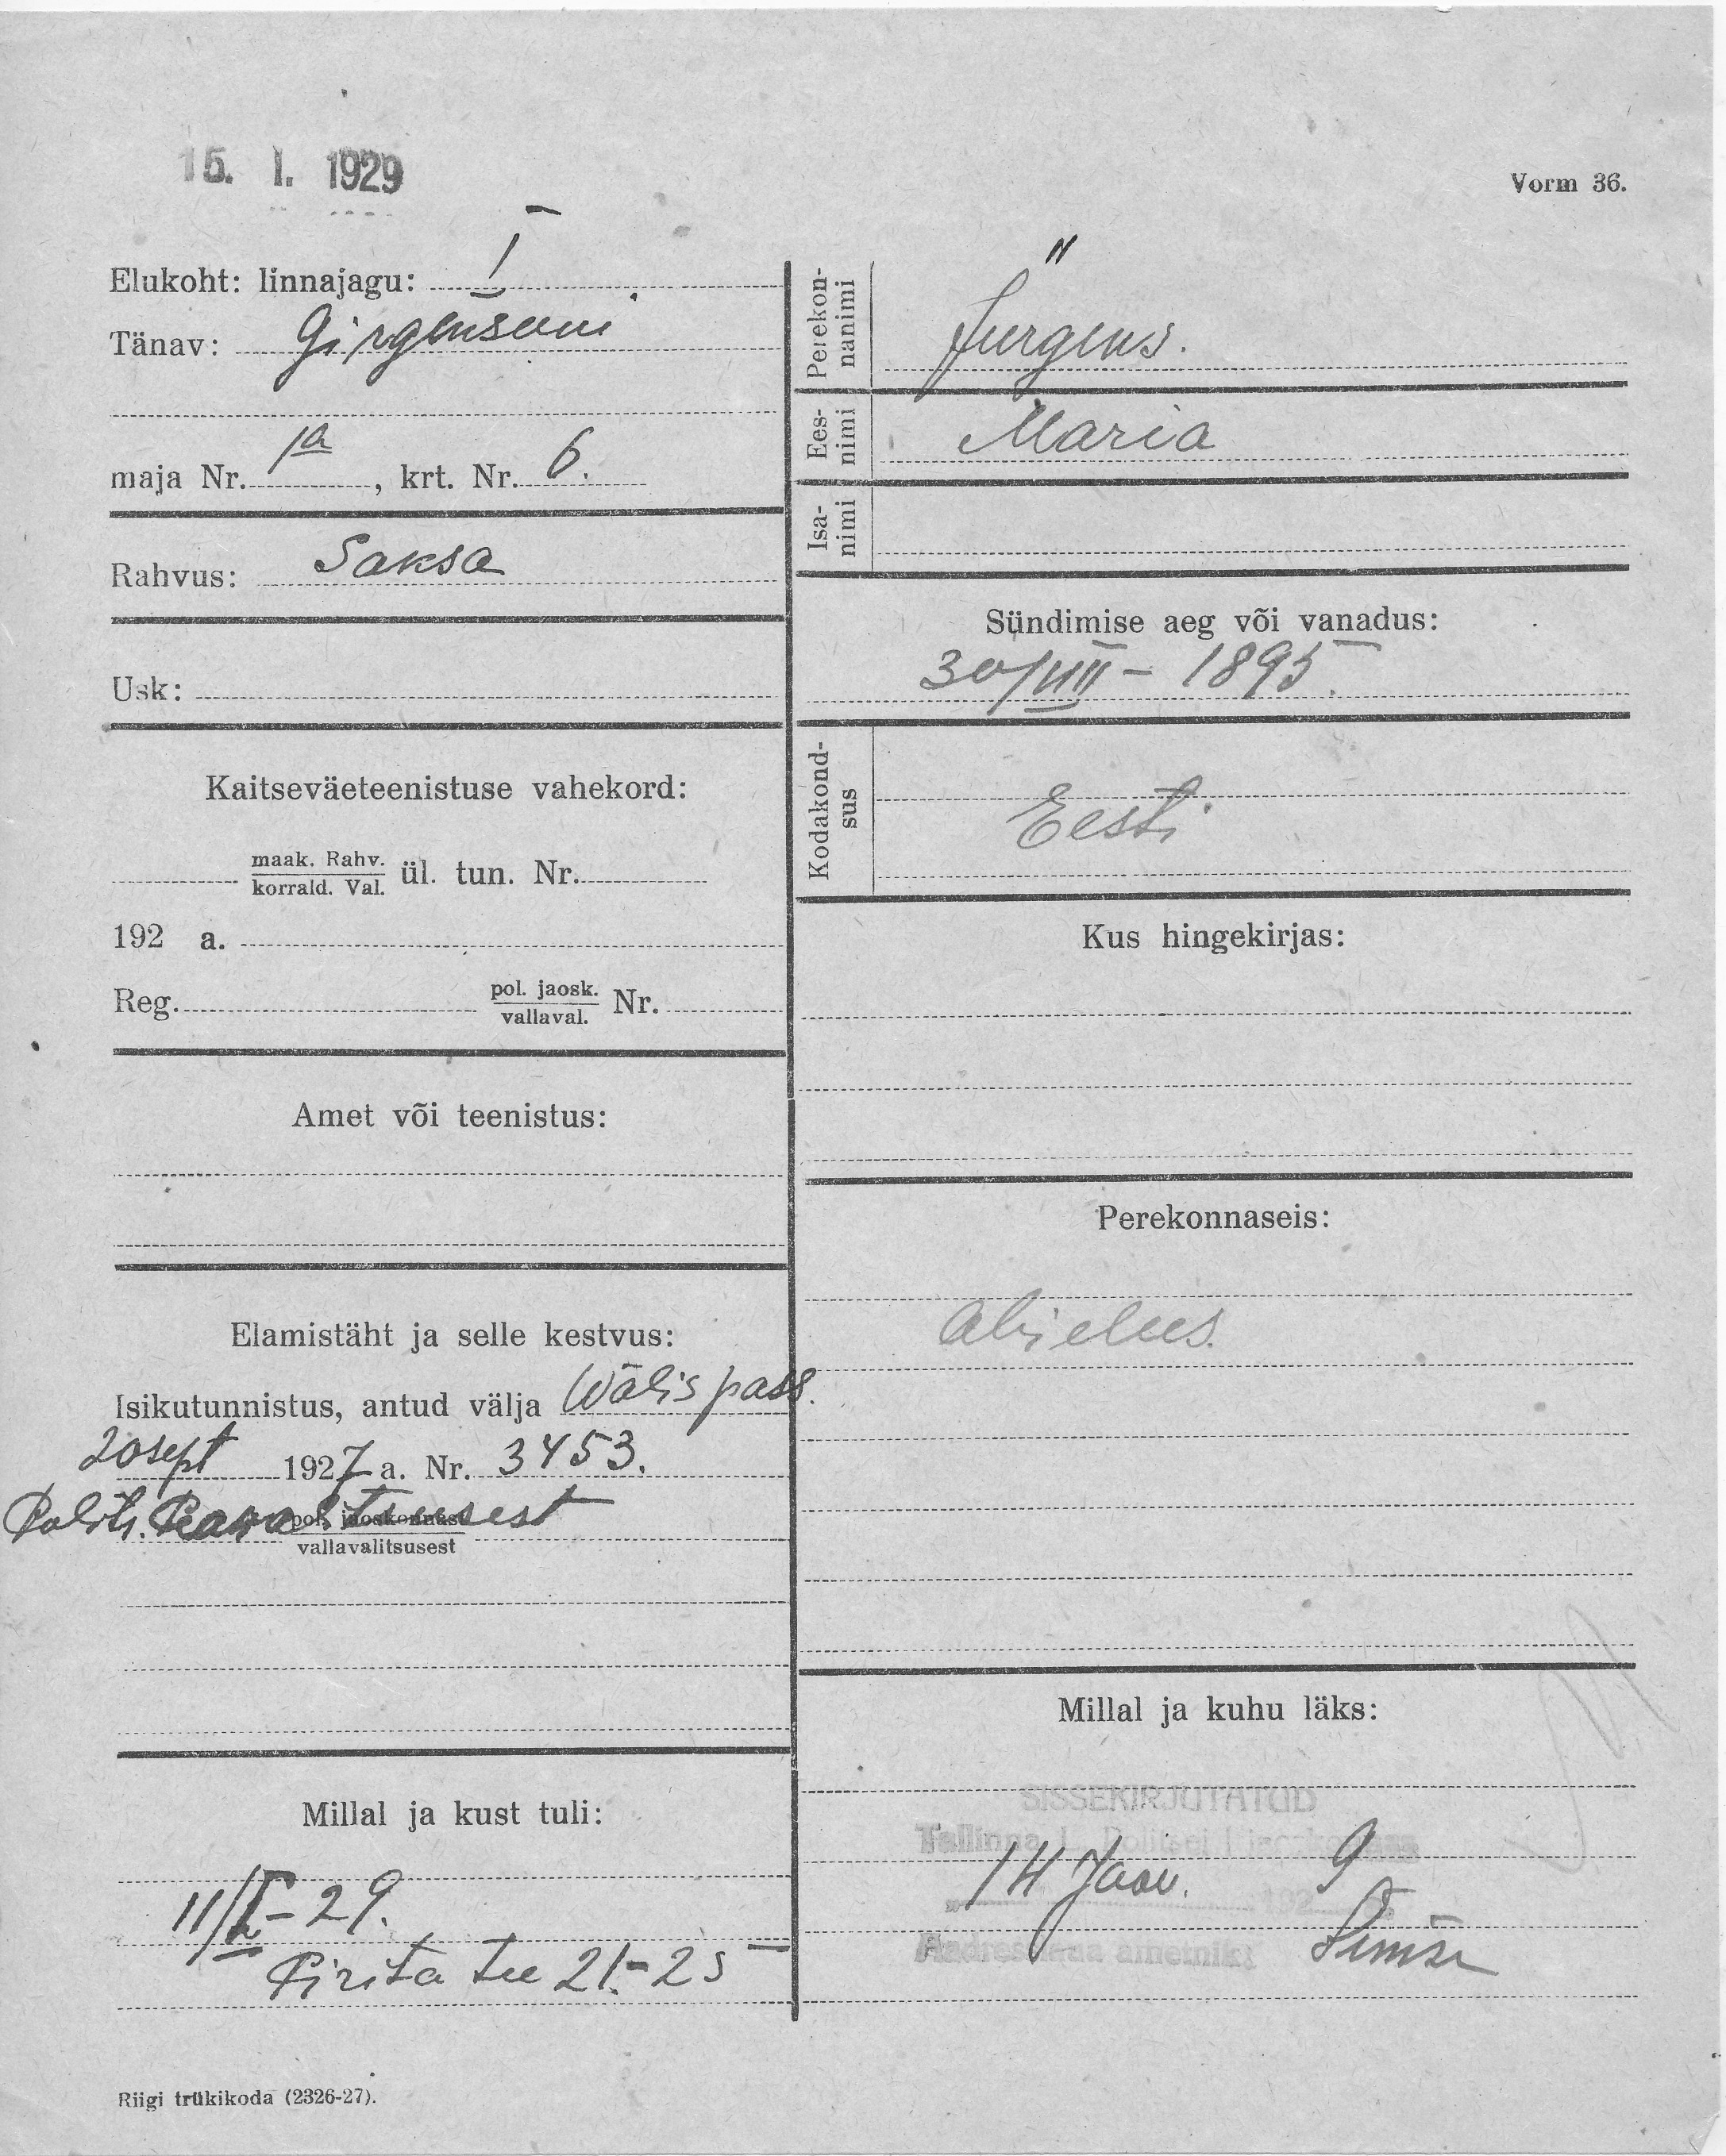 15. I. 1929
Vorm 36.
Elukoht: linnajagu: I
Tänav: Girgensoni
maja Nr. 1a, krt. Nr. 6.
Rahvus: Saksa
Usk:
Kaitseväeteenistuse vahekord:
maak. Rahv.
korrald. Val. ül. tun. Nr.
192 a.
Reg. pol. jaosk.
vallaval. Nr.
Amet või teenistus:
Elamistäht ja selle kestvus:
Isikutunnistus, antud välja Wälispass.
20 sept 1927 a. Nr. 3453.
Polits. Peavalitsusest pol. jaoskonnast
vallavalitsusest
Millal ja kust tuli:
11/I - 29.
Pirita tee 21-25
Riigi trükikoda (2326-27).
Perekon-
nanimi
Jürgens.
Ees-
nimi
Maria
Isa-
nimi
Sündimise aeg või vanadus:
30/VIII - 1895.
Kodakond-
sus
Eesti
Kus hingekirjas:
Perekonnaseis:
abielus.
Millal ja kuhu läks:
SISSEKIRJUTATUD
Tallinna I. Politsei jaoskonnas
14 Jaan. 1929
Aadresslaua ametnik: